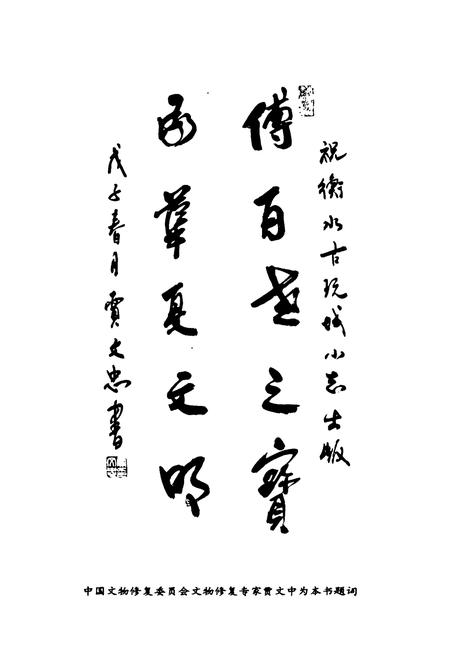 祝衡水古玩城小志出版
傳百世之寶
承華夏文明
戊子春月賈文忠書
中国文物修复委员会文物修复专家贾文中为本书题词